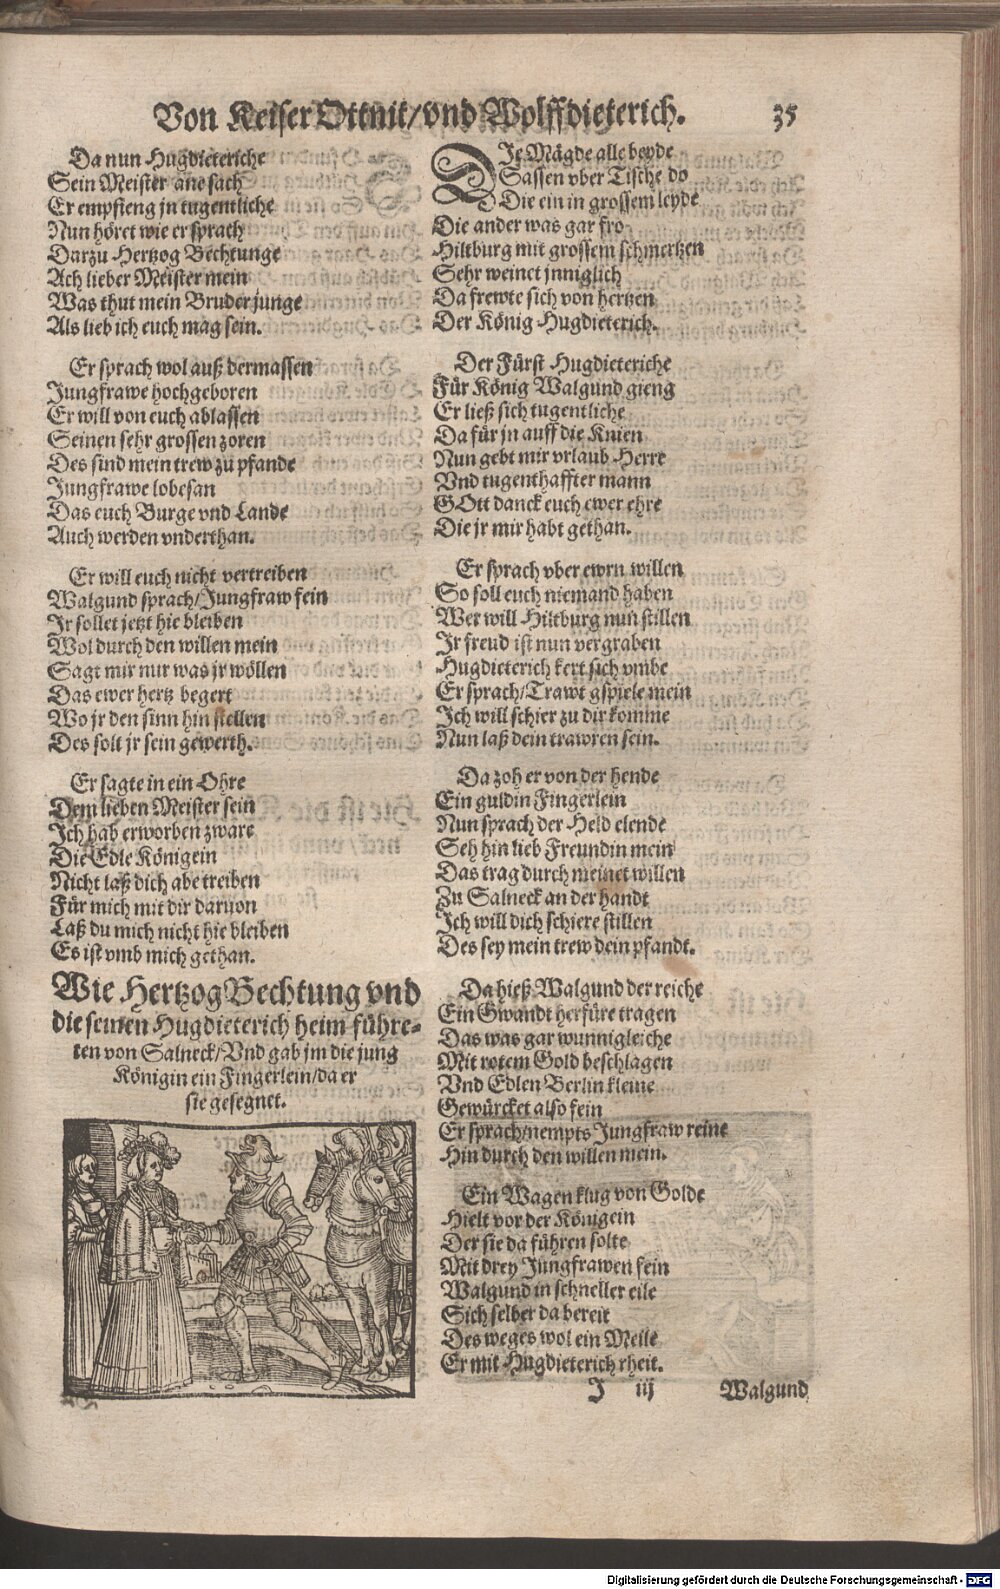 Von Keiser Ottnit/vnd Wolffdieterich. 35
Da nun Hugdieteriche
Sein Meister ane sach
Er empfieng jn tugentliche
Nun höret wie er sprach
Darzu Hertzog Bechtunge
Ach lieber Meister mein
Was thut mein Bruder junge
Als lieb ich euch mag sein.
Er sprach wol auß dermassen
Jungfrawe hochgeboren
Er will von euch ablassen
Seinen sehr grossen zoren
Des sind mein trew zu pfande
Jungfrawe lobesan
Das euch Burge vnd Lande
Auch werden vnderthan.
Er will euch nicht vertreiben
Walgund sprach/Jungfraw fein
Jr sollet jetzt hie bleiben
Wol durch den willen mein
Sagt mir nur was jr wöllen
Das ewer hertz begert
Wo jr den sinn hin stellen
Des solt jr sein gewerth.
Er sagte in ein Ohre
Dem lieben Meister sein
Ich hab erworben zware
Die Edle Königein
Nicht laß dich abe treiben
Für mich mit dir daruon
Laß du mich nicht hie bleiben
Es ist vmb mich gethan.
Wie Hertzog Bechtung vnd
die seinen Hugdieterich heim führe-
ten von Salneck/Vnd gab jm die jung
Königin ein Fingerlein/da er
sie gesegnet.
DJe Mägde alle beyde
Sassen vber Tische do
Die ein in grossem leyde
Die ander was gar fro
Hiltburg mit grossem schmertzen
Sehr weinet jnniglich
Da frewte sich von hertzen
Der König Hugdieterich.
Der Fürst Hugdieteriche
Für König Walgund gieng
Er ließ sich tugentliche
Da für jn auff die Knien
Nun gebt mir vrlaub Herre
Vnd tugenthaffter mann
GOtt danck euch ewer ehre
Die jr mir habt gethan.
Er sprach vber ewrn willen
So soll euch niemand haben
Wer will Hiltburg nun stillen
Jr freud ist nun vergraben
Hugdieterich kert sich vmbe
Er sprach/Trawt gspiele mein
Ich will schier zu dir komme
Nun laß dein trawren sein.
Da zoh er von der hende
Ein guldin Fingerlein
Nun sprach der Held elende
Seh hin lieb Freundin mein
Das trag durch meinet willen
Zu Salneck an der handt
Ich will dich schiere stillen
Des sey mein trew dein pfandt.
Da hieß Walgund der reiche
Ein Gwandt herfüre tragen
Das was gar wunnigleiche
Mit rotem Gold beschlagen
Vnd Edlen Berlin kleine
Gewürcket also fein
Er sprach/nempts Jungfraw reine
Hin durch den willen mein.
Ein Wagen klug von Golde
Hielt vor der Königein
Der sie da führen solte
Mit drey Jungfrawen fein
Walgund in schneller eile
Sich selber da bereit
Des weges wol ein Meile
Er mit Hugdieterich rheit.
J iij Walgund
Digitalisierung gefördert durch die Deutsche Forschungsgemeinschaft - DFG